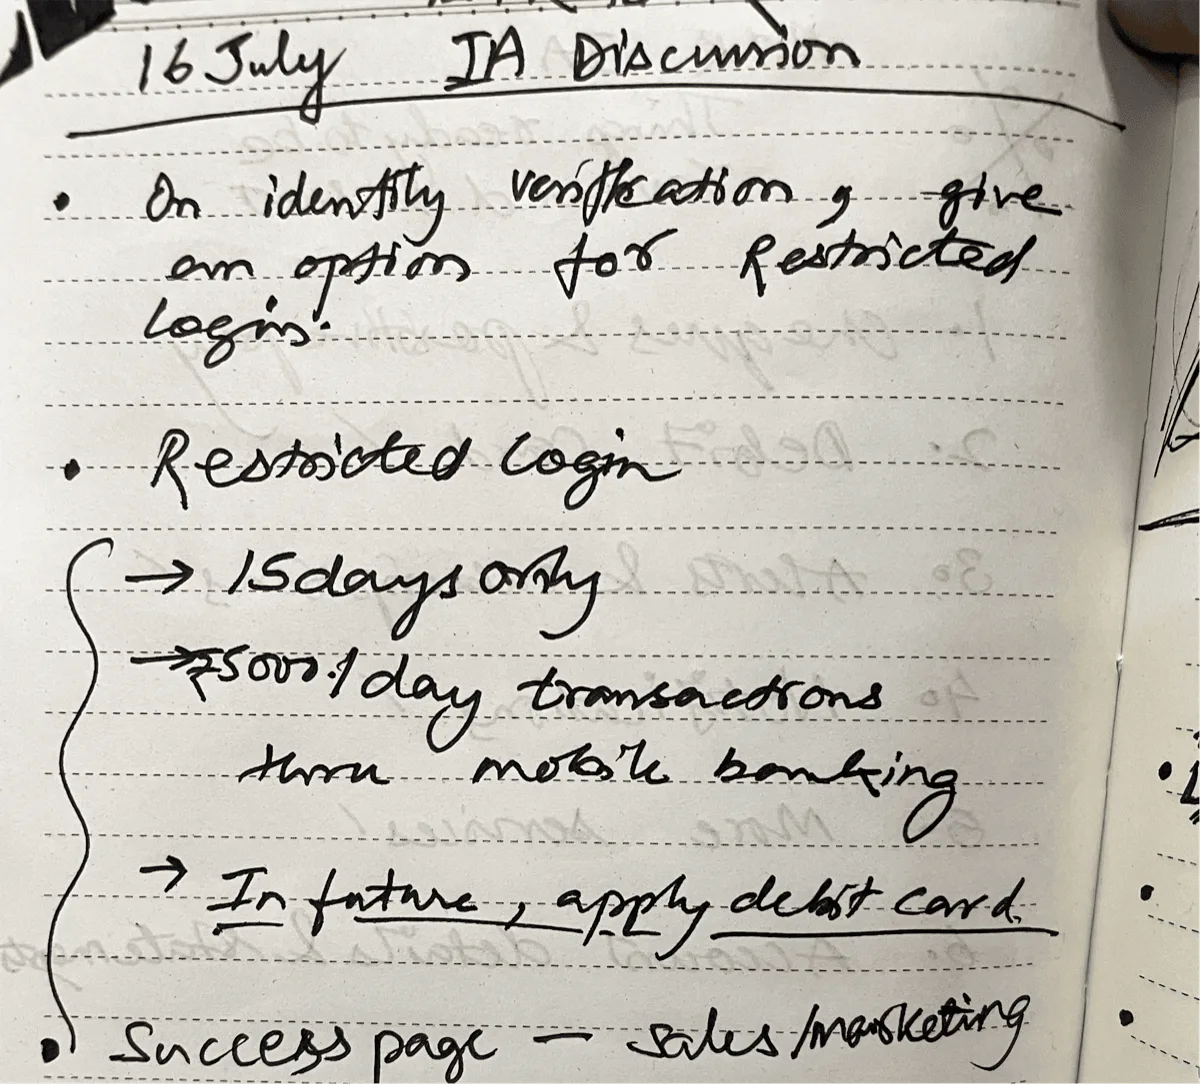 16 July IA Discussion
• On identity verification, give
an option for Restricted
Login.
• Restricted Login
→ 15 days only
→ ₹5000/day transactions
thru mobile banking
→ In future, apply debit card.
• Success page — sales/marketing